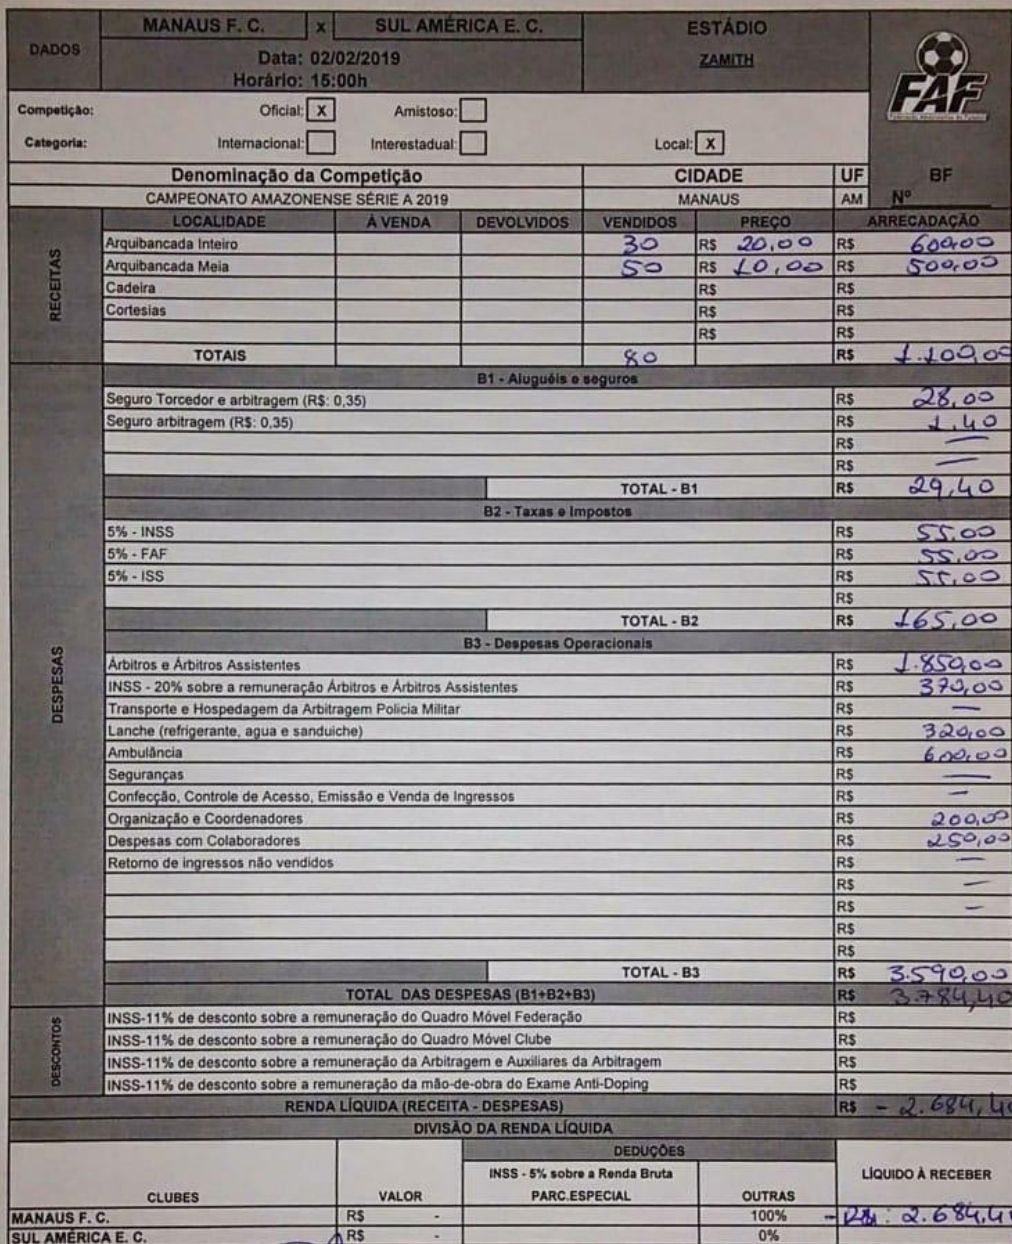 DADOS
MANAUS F. C. x SUL AMÉRICA E. C. ESTÁDIO
Data: 02/02/2019 ZAMITH
Horário: 15:00h
FAF
Competição: Oficial: X Amistoso:
Categoria: Internacional: Interestadual: Local: X
Denominação da Competição CIDADE UF BF
CAMPEONATO AMAZONENSE SÉRIE A 2019 MANAUS AM Nº
RECEITAS
LOCALIDADE À VENDA DEVOLVIDOS VENDIDOS PREÇO ARRECADAÇÃO
Arquibancada Inteiro 30 R$ 20,00 R$ 600,00
Arquibancada Meia 50 R$ 10,00 R$ 500,00
Cadeira R$ R$
Cortesias R$ R$
R$ R$
TOTAIS 80 R$ 1.100,00
DESPESAS
B1 - Aluguéis e seguros
Seguro Torcedor e arbitragem (R$: 0,35) R$ 28,00
Seguro arbitragem (R$: 0,35) R$ 1,40
R$ —
R$ —
TOTAL - B1 R$ 29,40
B2 - Taxas e Impostos
5% - INSS R$ 55,00
5% - FAF R$ 55,00
5% - ISS R$ 55,00
R$
TOTAL - B2 R$ 165,00
B3 - Despesas Operacionais
Árbitros e Árbitros Assistentes R$ 1.850,00
INSS - 20% sobre a remuneração Árbitros e Árbitros Assistentes R$ 370,00
Transporte e Hospedagem da Arbitragem Policia Militar R$ —
Lanche (refrigerante, agua e sanduiche) R$ 320,00
Ambulância R$ 600,00
Seguranças R$ —
Confecção, Controle de Acesso, Emissão e Venda de Ingressos R$ —
Organização e Coordenadores R$ 200,00
Despesas com Colaboradores R$ 250,00
Retorno de ingressos não vendidos R$ —
R$ —
R$ —
R$
R$
TOTAL - B3 R$ 3.590,00
TOTAL DAS DESPESAS (B1+B2+B3) R$ 3.784,40
DESCONTOS
INSS-11% de desconto sobre a remuneração do Quadro Móvel Federação R$
INSS-11% de desconto sobre a remuneração do Quadro Móvel Clube R$
INSS-11% de desconto sobre a remuneração da Arbitragem e Auxiliares da Arbitragem R$
INSS-11% de desconto sobre a remuneração da mão-de-obra do Exame Anti-Doping R$
RENDA LÍQUIDA (RECEITA - DESPESAS) R$ - 2.684,40
DIVISÃO DA RENDA LÍQUIDA
DEDUÇÕES
INSS - 5% sobre a Renda Bruta LÍQUIDO À RECEBER
CLUBES VALOR PARC.ESPECIAL OUTRAS
MANAUS F. C. R$ - 100% - R$: 2.684,4
SUL AMÉRICA E. C. R$ - 0%